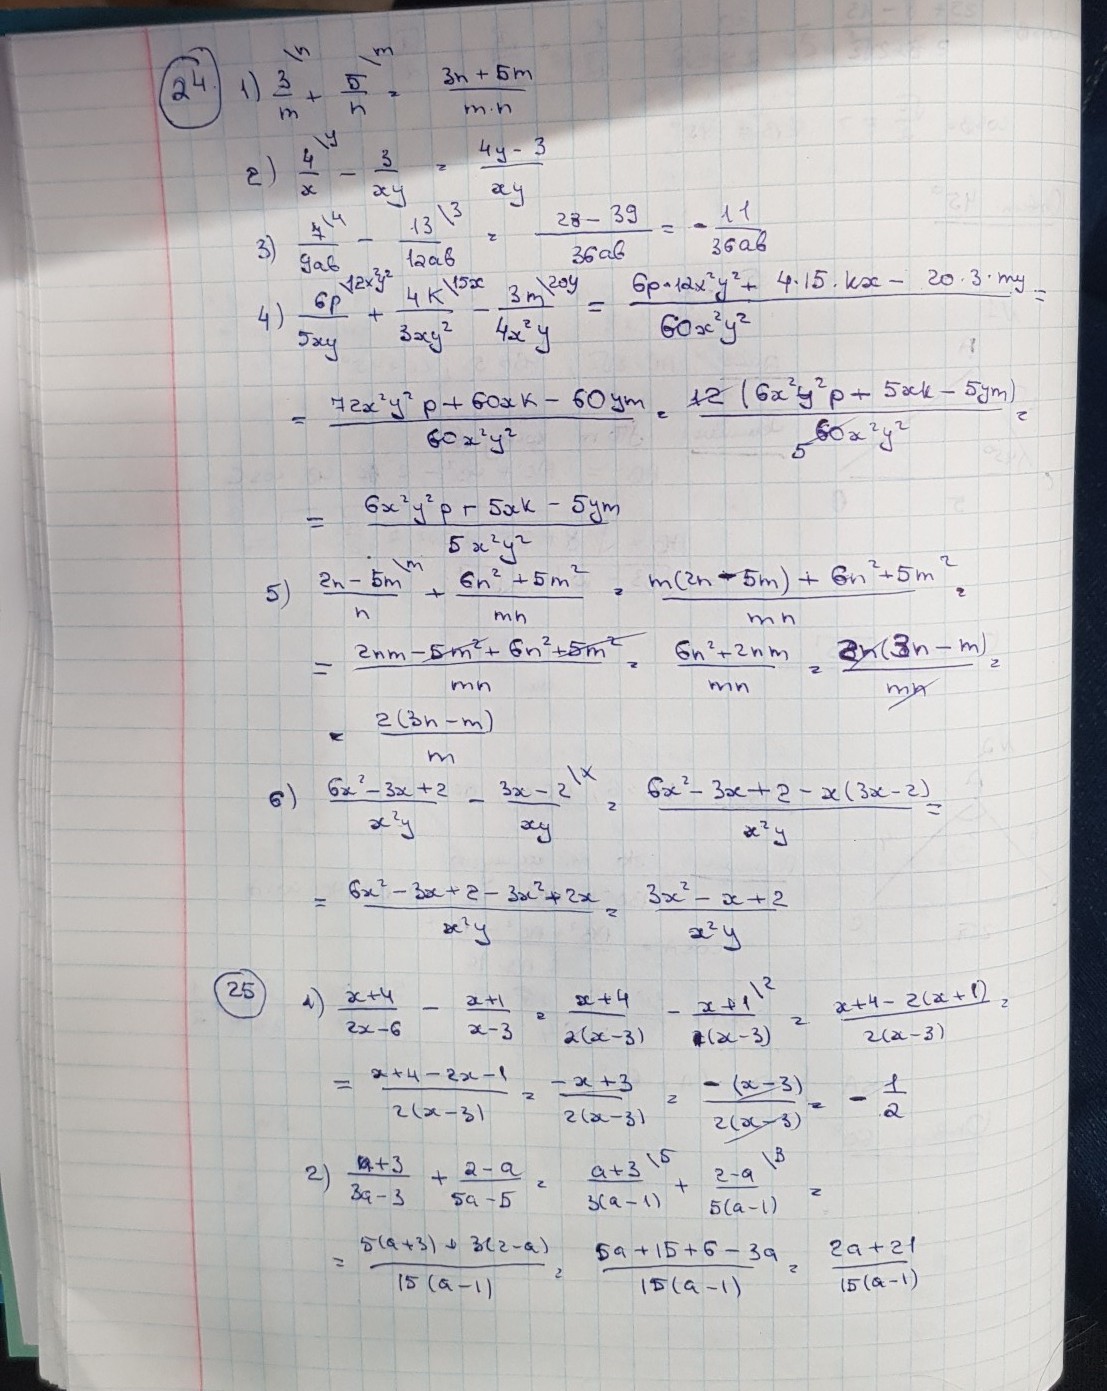 24. 1) 3/m \n + 5/n \m = (3n + 5m)/(m·n)
2) 4/x \y − 3/xy = (4y − 3)/xy
3) 7/9ab \4 − 13/12ab \3 = (28 − 39)/36ab = − 11/36ab
4) 6p/5xy \12x²y² + 4k/3xy² \15x − 3m/4x²y \20y = (6p·12x²y² + 4·15·kx − 20·3·my)/60x²y² =
= (72x²y²p + 60xk − 60ym)/60x²y² = 12(6x²y²p + 5xk − 5ym)/60x²y² 5 =
= (6x²y²p + 5xk − 5ym)/5x²y²
5) (2n − 5m)/n \m + (6n² + 5m²)/mn = (m(2n − 5m) + 6n² + 5m²)/mn =
= (2nm − 5m² + 6n² + 5m²)/mn = (6n² + 2nm)/mn = 2n(3n − m)/mn =
= 2(3n − m)/m
6) (6x² − 3x + 2)/x²y − (3x − 2)/xy \x = (6x² − 3x + 2 − x(3x − 2))/x²y =
= (6x² − 3x + 2 − 3x² + 2x)/x²y = (3x² − x + 2)/x²y
25 1) (x+4)/(2x−6) − (x+1)/(x−3) = (x+4)/2(x−3) − (x+1)/(x−3) \2 = (x+4−2(x+1))/2(x−3) =
= (x+4−2x−1)/2(x−3) = (−x+3)/2(x−3) = −(x−3)/2(x−3) = − 1/2
2) (a+3)/(3a−3) + (2−a)/(5a−5) = (a+3)/3(a−1) \5 + (2−a)/5(a−1) \3 =
= (5(a+3) + 3(2−a))/15(a−1) = (5a+15+6−3a)/15(a−1) = (2a+21)/15(a−1)